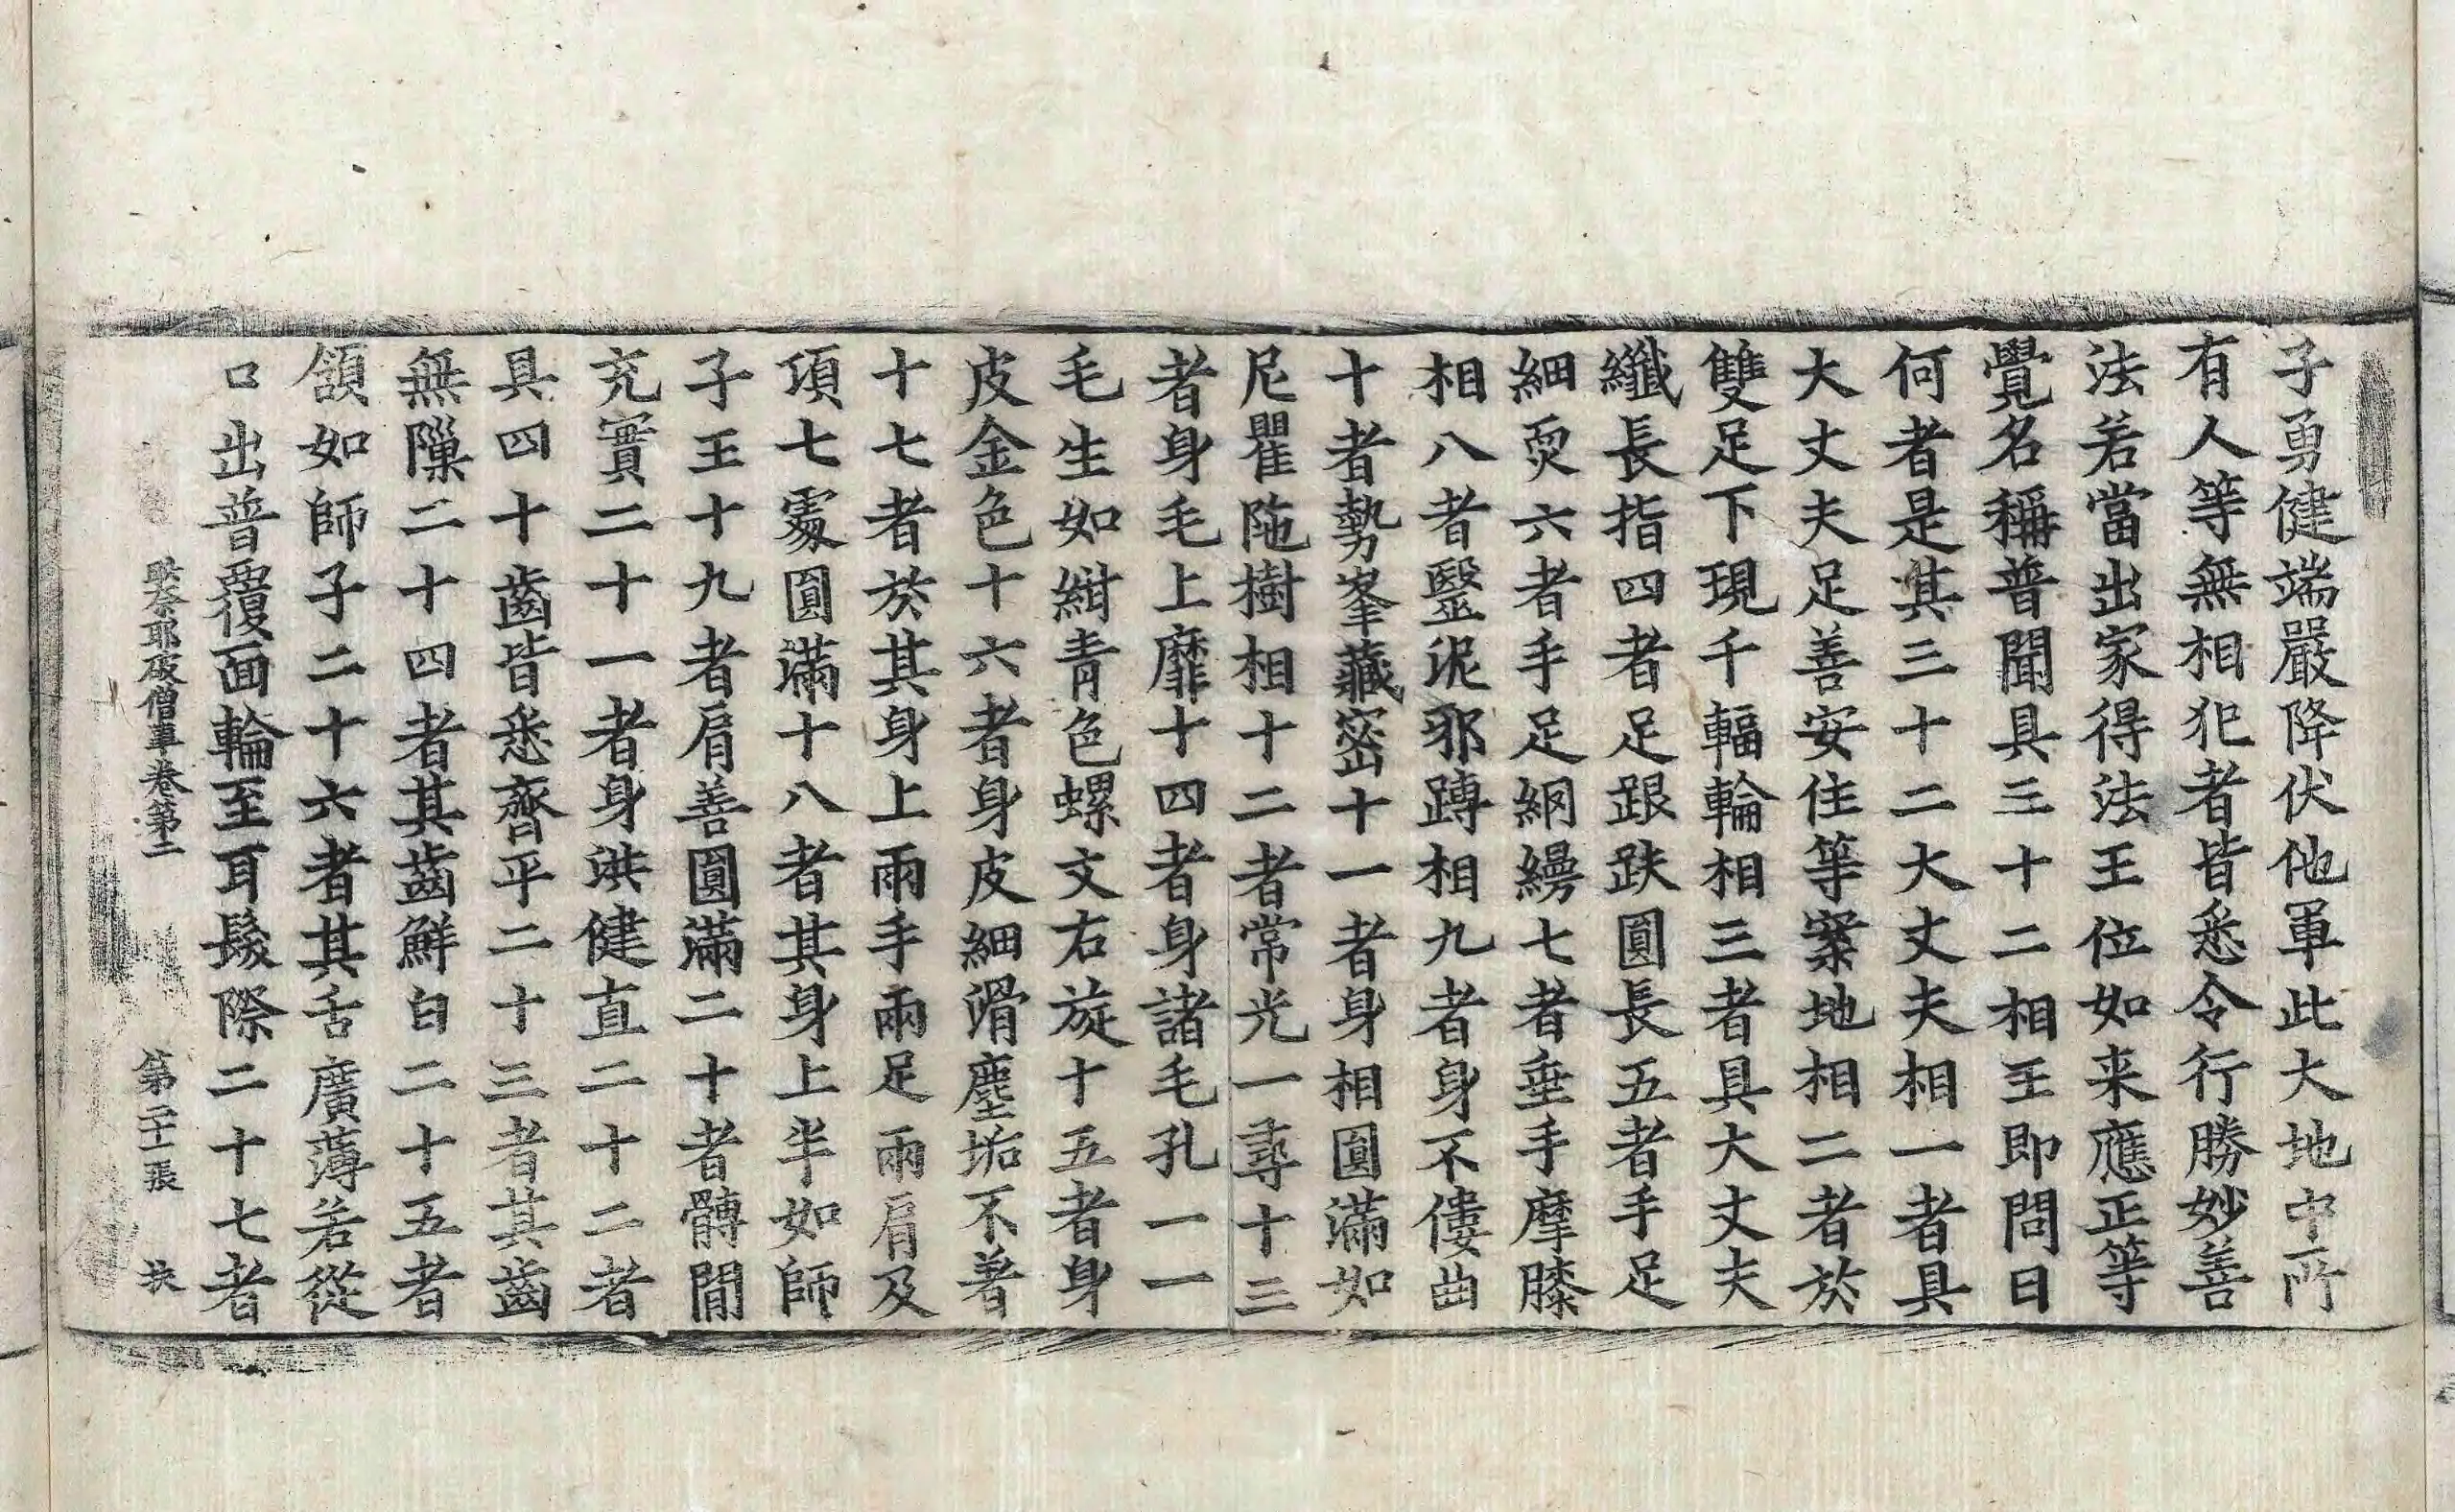 子勇健端嚴降伏他軍此大地中所
有人等無相犯者皆悉令行勝妙善
法若當出家得法王位如来應正等
覺名稱普聞具三十二相王即問曰
何者是其三十二大丈夫相一者具
大丈夫足善安住等案地相二者於
雙足下現千輻輪相三者具大丈夫
纖長指四者足跟趺圓長五者手足
細耎六者手足網縵七者垂手摩膝
相八者瑿泥邪蹲相九者身不僂曲
十者勢峯藏密十一者身相圓滿如
尼瞿陁樹相十二者常光一尋十三
者身毛上靡十四者身諸毛孔一一
毛生如紺青色螺文右旋十五者身
皮金色十六者身皮細滑塵垢不著
十七者於其身上兩手兩足兩肩及
項七處圓滿十八者其身上半如師
子王十九者肩善圓滿二十者髆間
充實二十一者身洪健直二十二者
具四十齒皆悉齊平二十三者其齒
無隟二十四者其齒鮮白二十五者
頷如師子二十六者其舌廣薄若從
口出普覆面輪至耳髮際二十七者
奈耶破僧事卷第二 第二十一張 扶